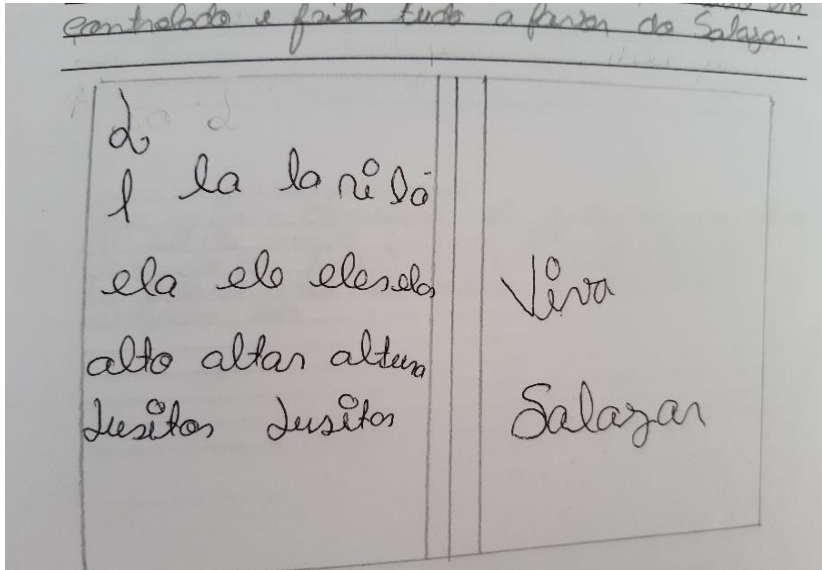 controlado e feito tudo a favor do Salazar.
L
l la la ri ló
ela elo eles elas
alto altar altura
Lusitos Lusitos
Viva
Salazar